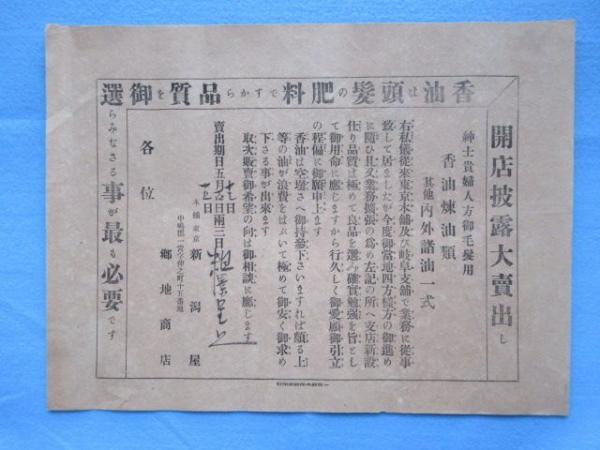 香油は頭髪の肥料ですから品質を御選
らみなさる事が最も必要です
開店披露大賣出し
紳士貴婦人方御毛髪用
香油煉油類
其他内外諸油一式
右私儀従來東京本舗及び岐阜支舗で業務に従事
致して居ましたが今度御當地四方様方の御進め
に随ひ且又業務擴張の為め左記の所へ支店新設
仕り品質は極めて良品を選み確實勉強を旨とし
て御用命に應じますから行久しく御愛顧御引立
の程偏に御願申上ます
香油は空壜さへ御持參下さいますれば頗る上
等の油が浪費をはぶいて極めて御安く御求め
下さる事が出來ます
取次販賣御希望の向は御相談に應じます
賣出期日五月 日 日両三日
本舗東京 新潟屋
中嶋郡一宮今仲之町十五番地
郷地商店
各位